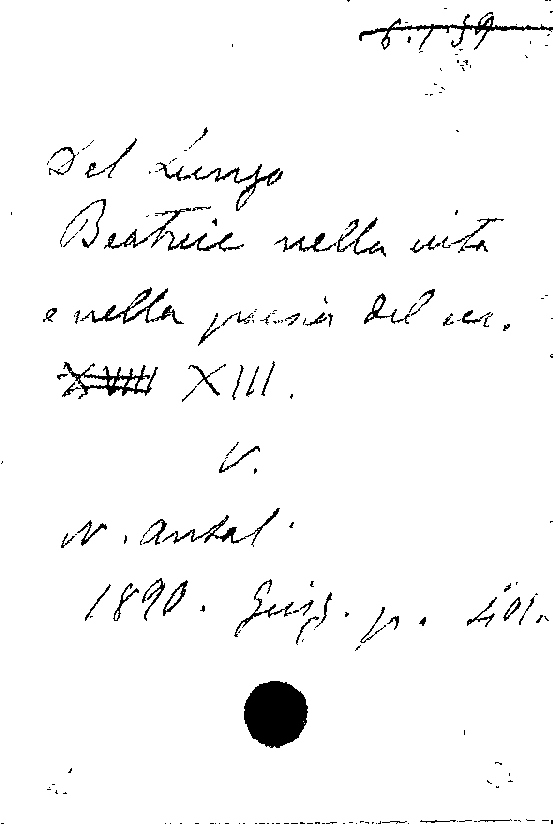 6.139
Del Lungo
Beatrice nella vita
e nella poesia del sec.
XVIII XIII.
V.
N. Antol.
1890. Giug. p. 401.